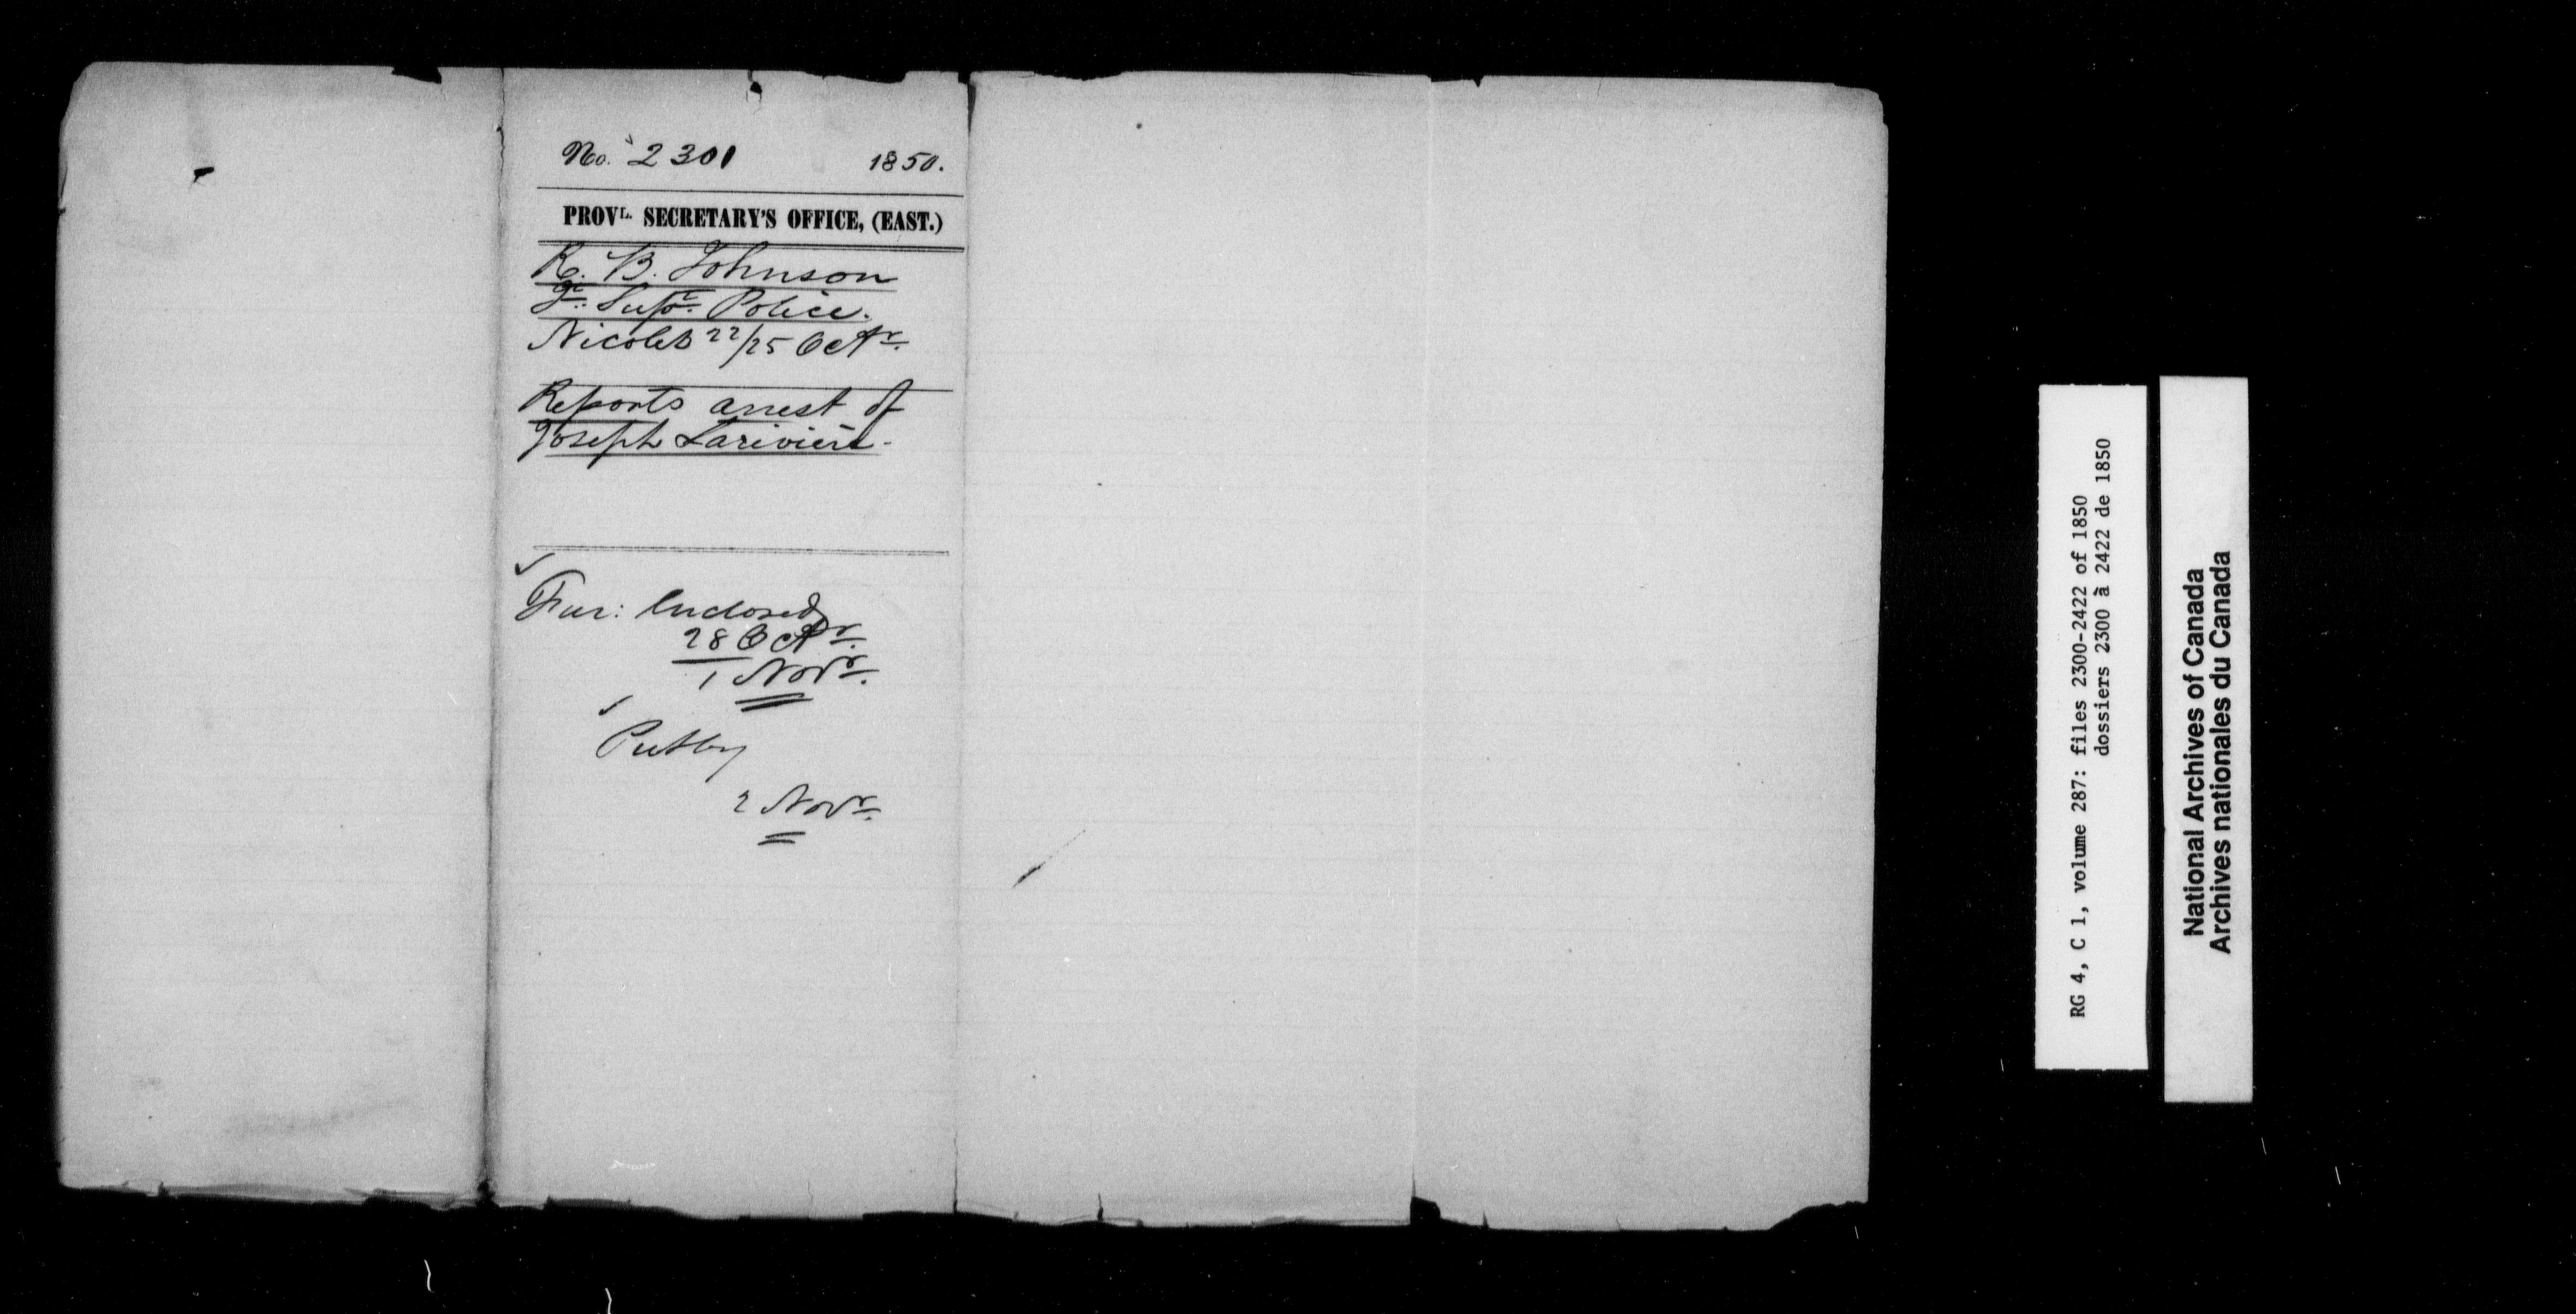 No. 2301 1850.
PROVL. SECRETARY'S OFFICE, (EAST.)
R. B. Johnson
Supt. Police.
Nicolet 22/25 Octr.
Reports arrest of
Joseph Lariviere.
Fur: Enclosed
28 Octr.
1 Novr.
Put by
2 Novr.
RG 4, C 1, volume 287: files 2300-2422 of 1850
dossiers 2300 à 2422 de 1850
National Archives of Canada
Archives nationales du Canada